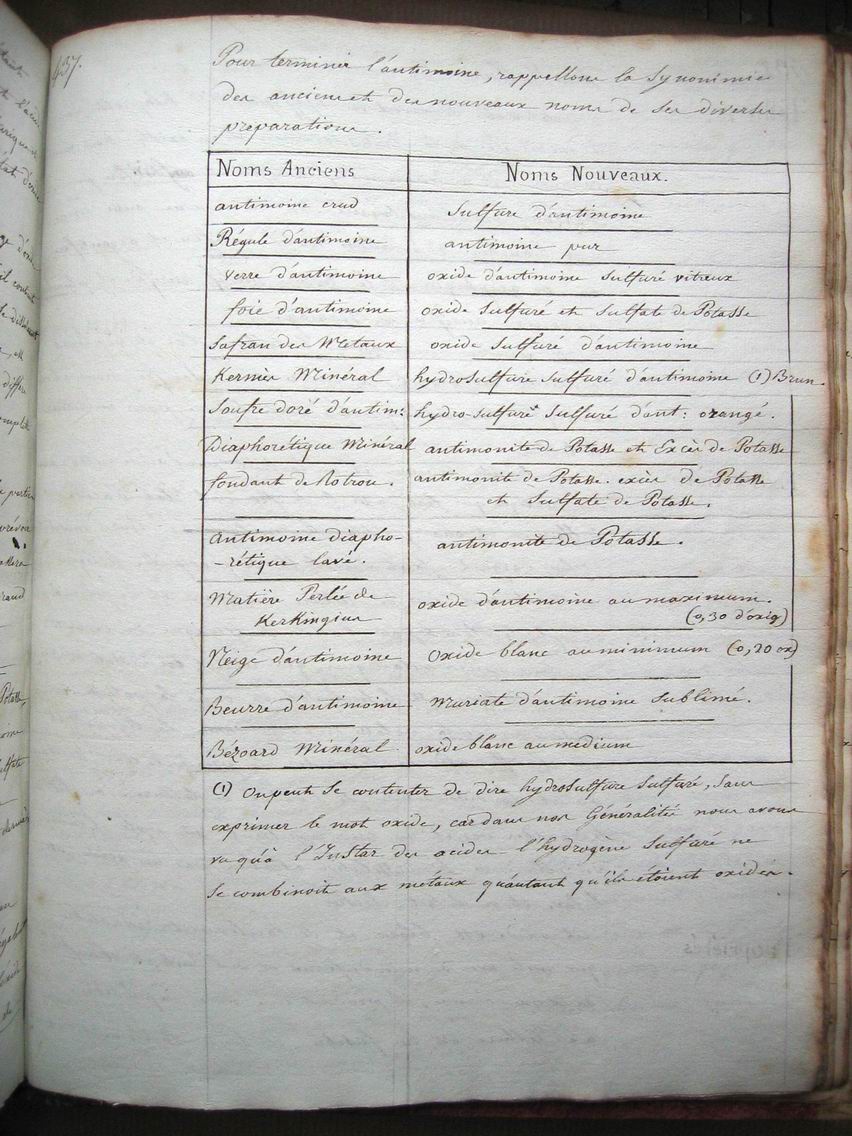 437.
Pour terminer l'antimoine, rappellons la Synonimie
des anciens et des nouveaux noms de ses diverses
préparations.
Noms Anciens Noms Nouveaux.
antimoine crud Sulfure d'antimoine
Régule d'antimoine antimoine pur
verre d'antimoine oxide d'antimoine Sulfuré vitreux
foie d'antimoine oxide Sulfuré et Sulfate de Potasse
Safran des Métaux oxide Sulfuré d'antimoine
Kermès Minéral hydrosulfure Sulfuré d'antimoine (1) Brun.
Soufre doré d'antim: hydro-sulfure Sulfuré d'ant: orangé.
Diaphorétique Minéral antimonite de Potasse et Excès de Potasse
fondant de Rotrou. antimonite de Potasse. excès de Potasse
et Sulfate de Potasse.
Antimoine diapho-
-rétique lavé. antimonite de Potasse.
Matière Perlée de oxide d'antimoine au maximum.
Kerkringius (0,30 d'oxig)
Neige d'antimoine Oxide blanc au minimum (0,20 ox)
Beurre d'antimoine Muriate d'antimoine Sublimé.
Bézoard Minéral oxide blanc au medium
(1) On peut se contenter de dire hydrosulfure Sulfuré, sans
exprimer le mot oxide, car dans nos Généralités nous avons
vu qu'à l'Instar des acides l'hydrogène Sulfuré ne
se combinoit aux métaux qu'autant qu'ils étoient oxidés.